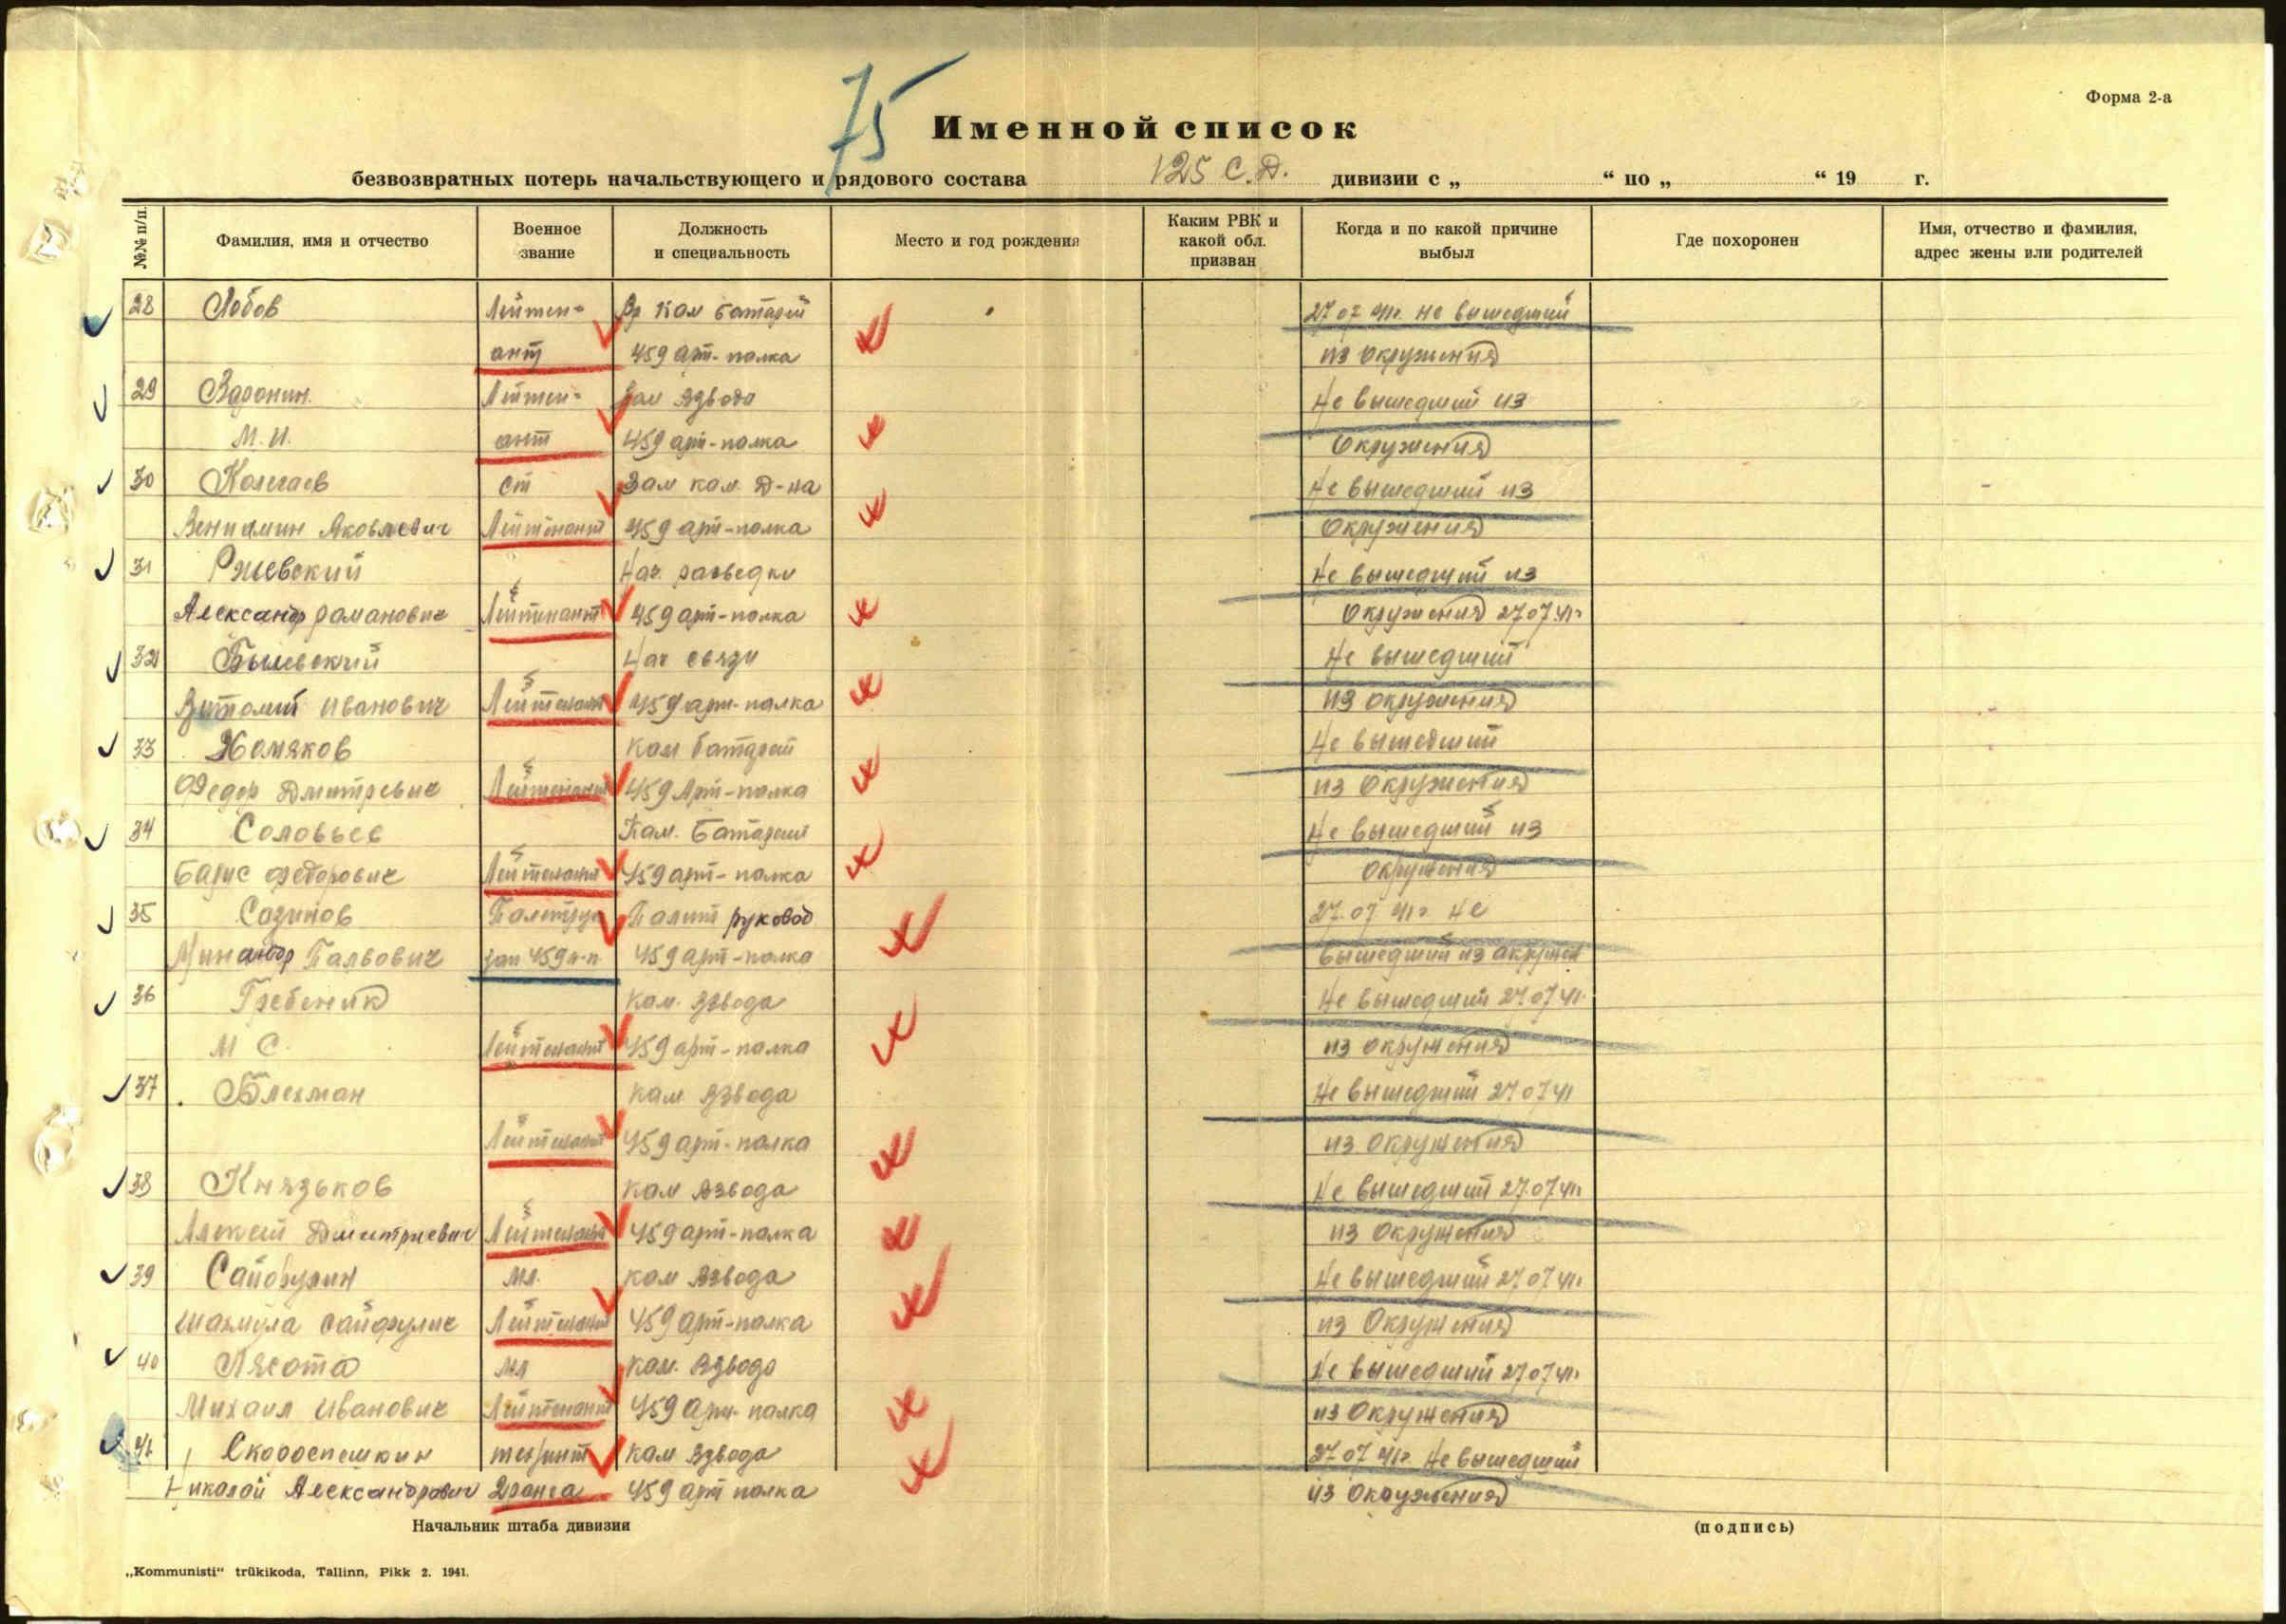 75
Форма 2-а
Именной список
безвозвратных потерь начальствующего и рядового состава 125 С.Д. дивизии с „ “ по „ “ 19 г.
№№ п/п. Фамилия, имя и отчество Военное звание Должность и специальность Место и год рождения Каким РВК и какой обл. призван Когда и по какой причине выбыл Где похоронен Имя, отчество и фамилия, адрес жены или родителей
28 Лобов Лейтен- Вр Ком батареи 27 07 41г. не вышедший
ант 459 арт-полка из окружения
29 Варонин. Лейтен- Ком Взвода Не вышедший из
М.И. ант 459 арт-полка Окружения
30 ст Зам ком. Д-на Не вышедший из
Вениамин Яковлевич Лейтенант 459 арт-полка Окружения
31 Ржевский Нач. разведки Не вышедший из
Александр Раманович Лейтенант 459 арт-полка Окружения 27 07 41г.
32 Нач связи Не вышедший
Иванович Лейтенант 459 арт-полка из окружения
33 Хомяков Ком батареи Не вышедший
Федор Дмитревич Лейтенант 459 Арт-полка из Окружения
34 Соловьев Ком. Батареи Не вышедший из
Барис Федорович Лейтенант 459 арт-полка окружения
35 Полит руковод 27.07 41г. не
459 арт-полка вышедший из
36 Гребеник Ком. Взвода Не вышедший 27.07 41г.
М С. Лейтенант 459 арт-полка из окружения
37 Блехман Ком Взвода Не вышедший 27 07 41
Лейтенант 459 арт-полка из Окружения
38 Князьков Ком Взвода Не вышедший 27.07 41г.
Алексей Дмитриевич Лейтенант 459 арт-полка из Окружения
39 мл. Ком Взвода Не вышедший 27.07 41г.
Лейтенант 459 арт-полка из Окружения
40 Лясота мл Ком. Взвода Не вышедший 27 07 41г.
Михаил Иванович Лейтенант 459 арт-полка из Окружения
41 Скороспешкин Ком Взвода 27 07 41г. Не вышедший
Николай Александрович 459 арт полка из Окружения
Начальник штаба дивизии (подпись)
„Kommunisti“ trükikoda, Tallinn, Pikk 2. 1941.